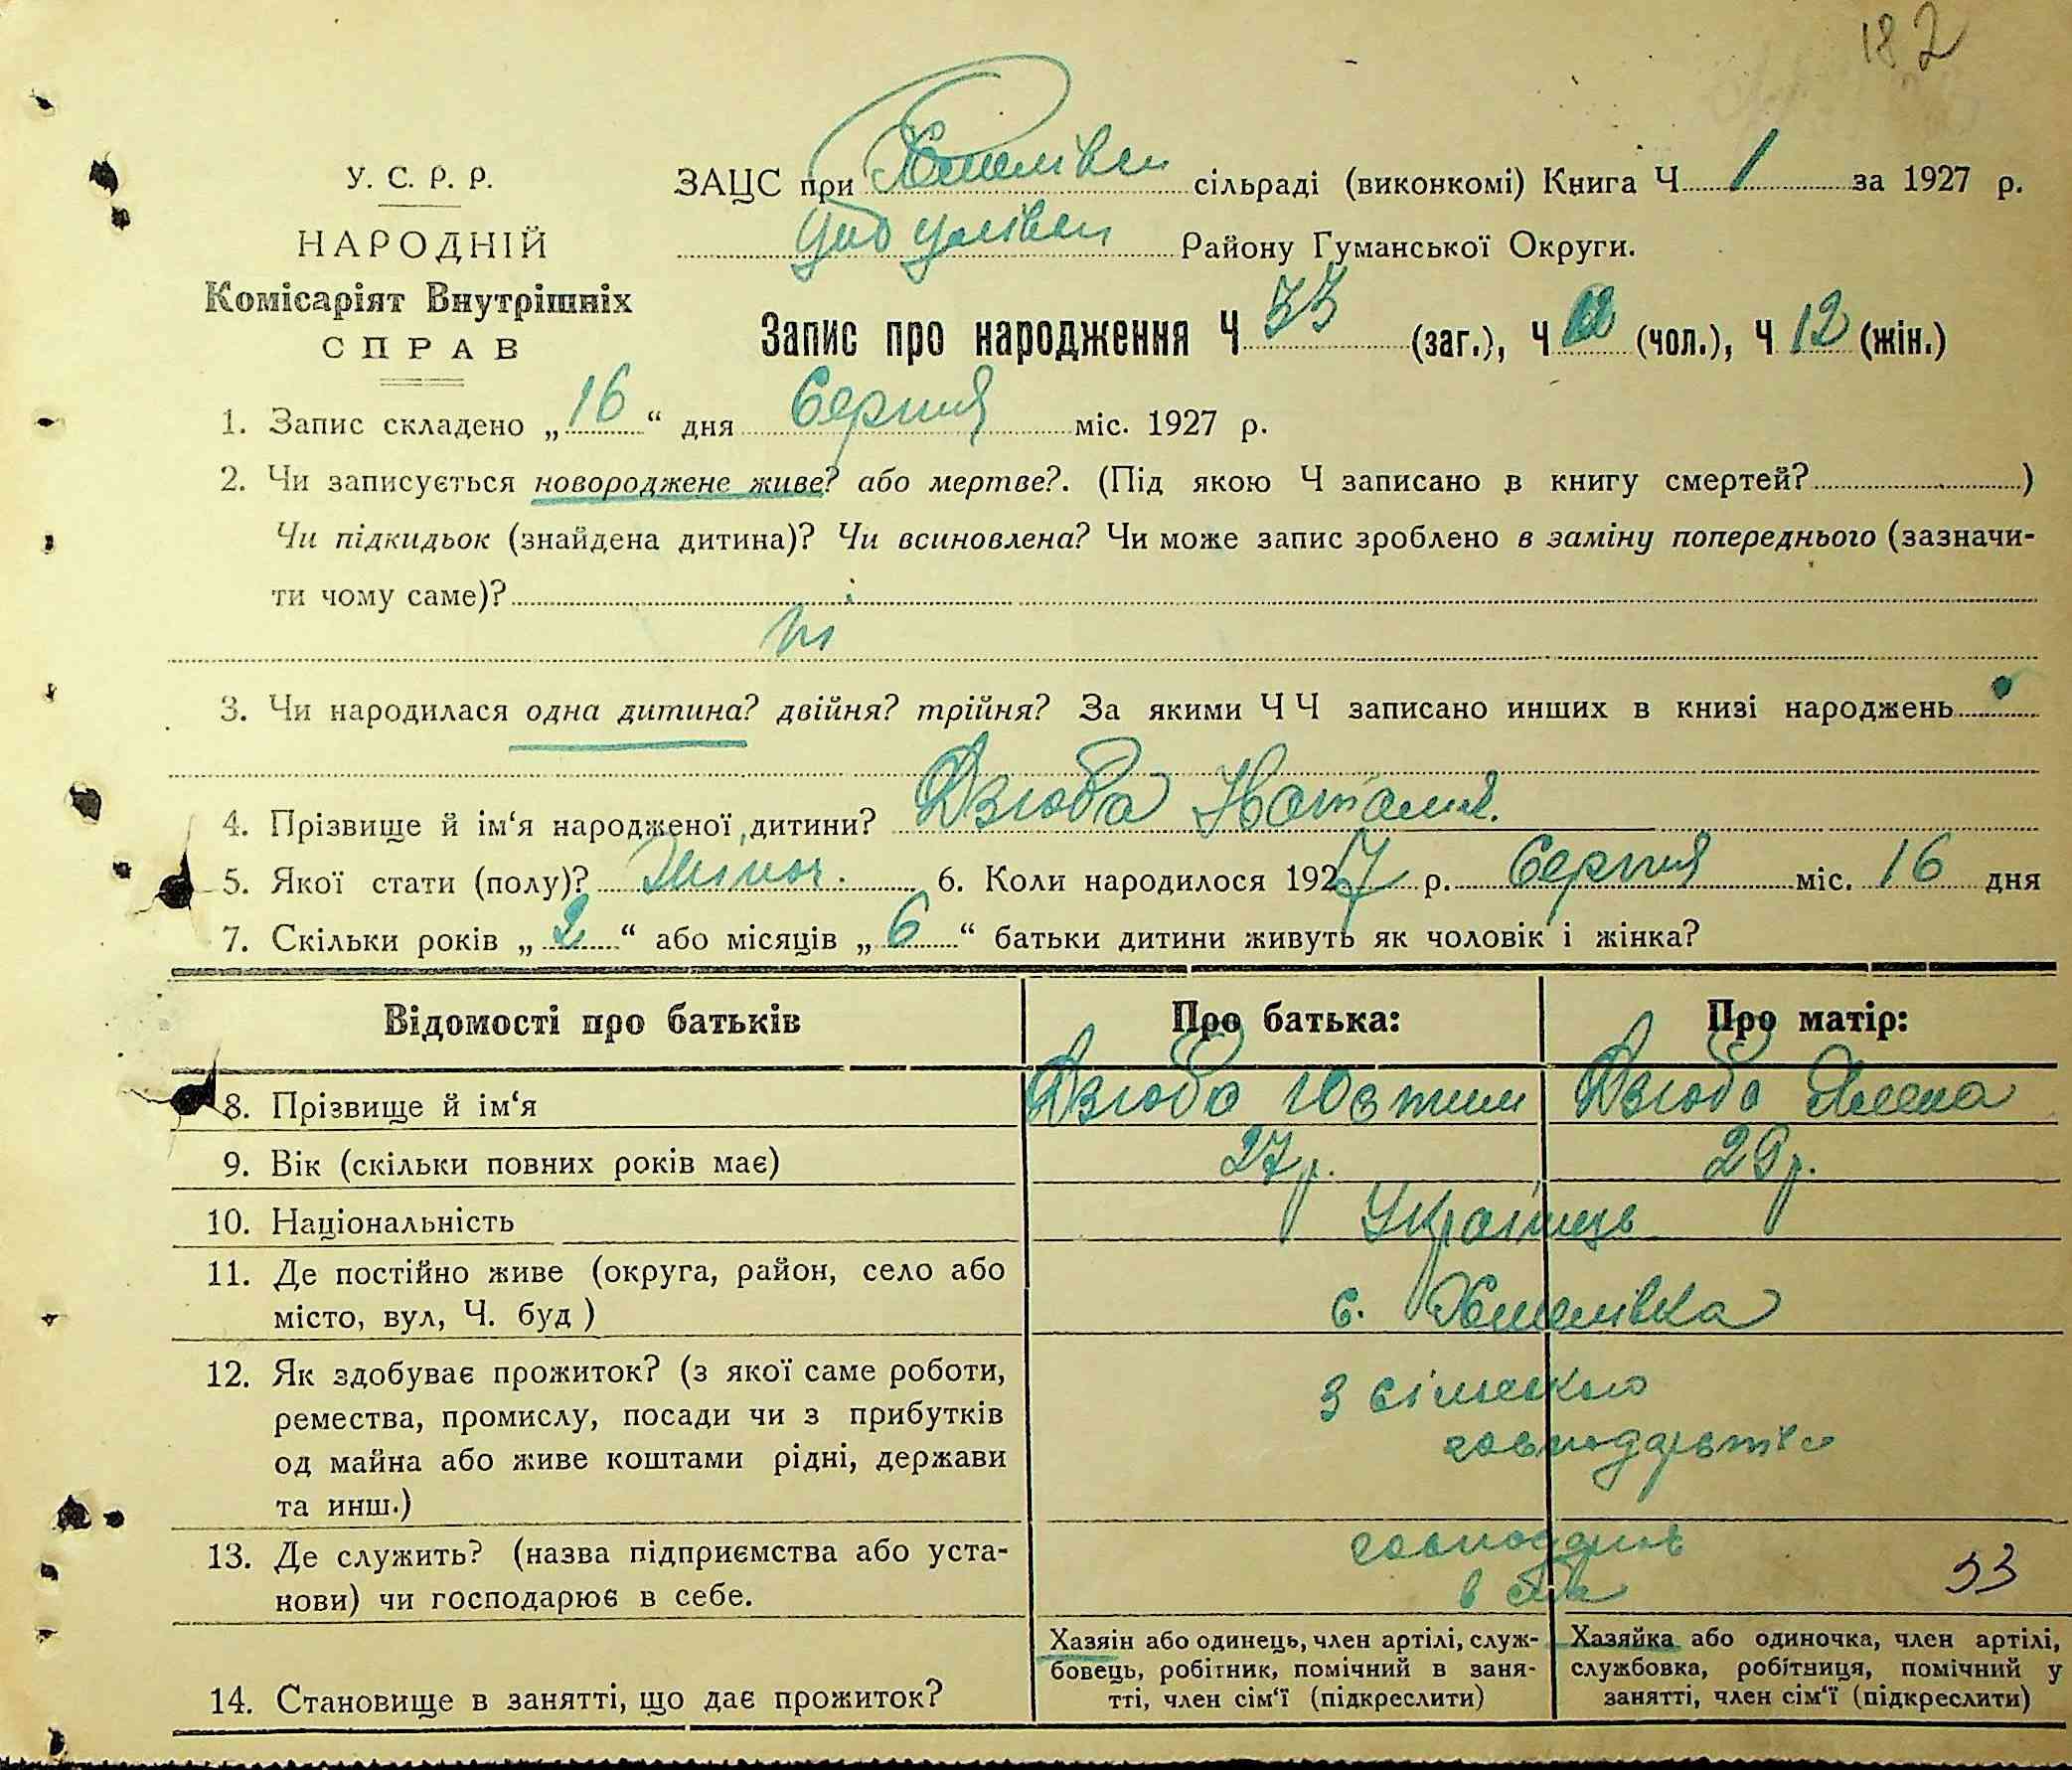 182
У. С. Р. Р.
НАРОДНІЙ
Комісаріят Внутрішніх
СПРАВ
ЗАЦС при сільраді (виконкомі) Книга Ч 1 за 1927 р.
Району Гуманської Округи.
Запис про народження Ч 33 (заг.), Ч (чол.), Ч 12 (жін.)
1. Запис складено „16“ дня Серпня міс. 1927 р.
2. Чи записується новороджене живе? або мертве?. (Під якою Ч записано в книгу смертей? )
Чи підкидьок (знайдена дитина)? Чи всиновлена? Чи може запис зроблено в заміну попереднього (зазначи-
ти чому саме)?
ні
3. Чи народилася одна дитина? двійня? трійня? За якими ЧЧ записано инших в книзі народжень
4. Прізвище й ім‘я народженої дитини? Дзюба Наталия.
5. Якої стати (полу)? Жіноч. 6. Коли народилося 1927 р. Серпня міс. 16 дня
7. Скільки років „2“ або місяців „6“ батьки дитини живуть як чоловік і жінка?
Відомості про батьків Про батька: Про матір:
8. Прізвище й ім‘я Дзюба Юхтим Дзюба Олена
9. Вік (скільки повних років має) 27 р. 29 р.
10. Національність Українець
11. Де постійно живе (округа, район, село або
місто, вул, Ч. буд ) с.
12. Як здобуває прожиток? (з якої саме роботи,
ремества, промислу, посади чи з прибутків
од майна або живе коштами рідні, держави
та инш.)
з сільського
господарства
13. Де служить? (назва підприємства або уста-
нови) чи господарює в себе.
в себе
33
14. Становище в занятті, що дає прожиток?
Хазяін або одинець, член артілі, служ-
бовець, робітник, помічний в заня-
тті, член сім‘ї (підкреслити)
Хазяйка або одиночка, член артілі,
службовка, робітниця, помічний у
занятті, член сім‘ї (підкреслити)